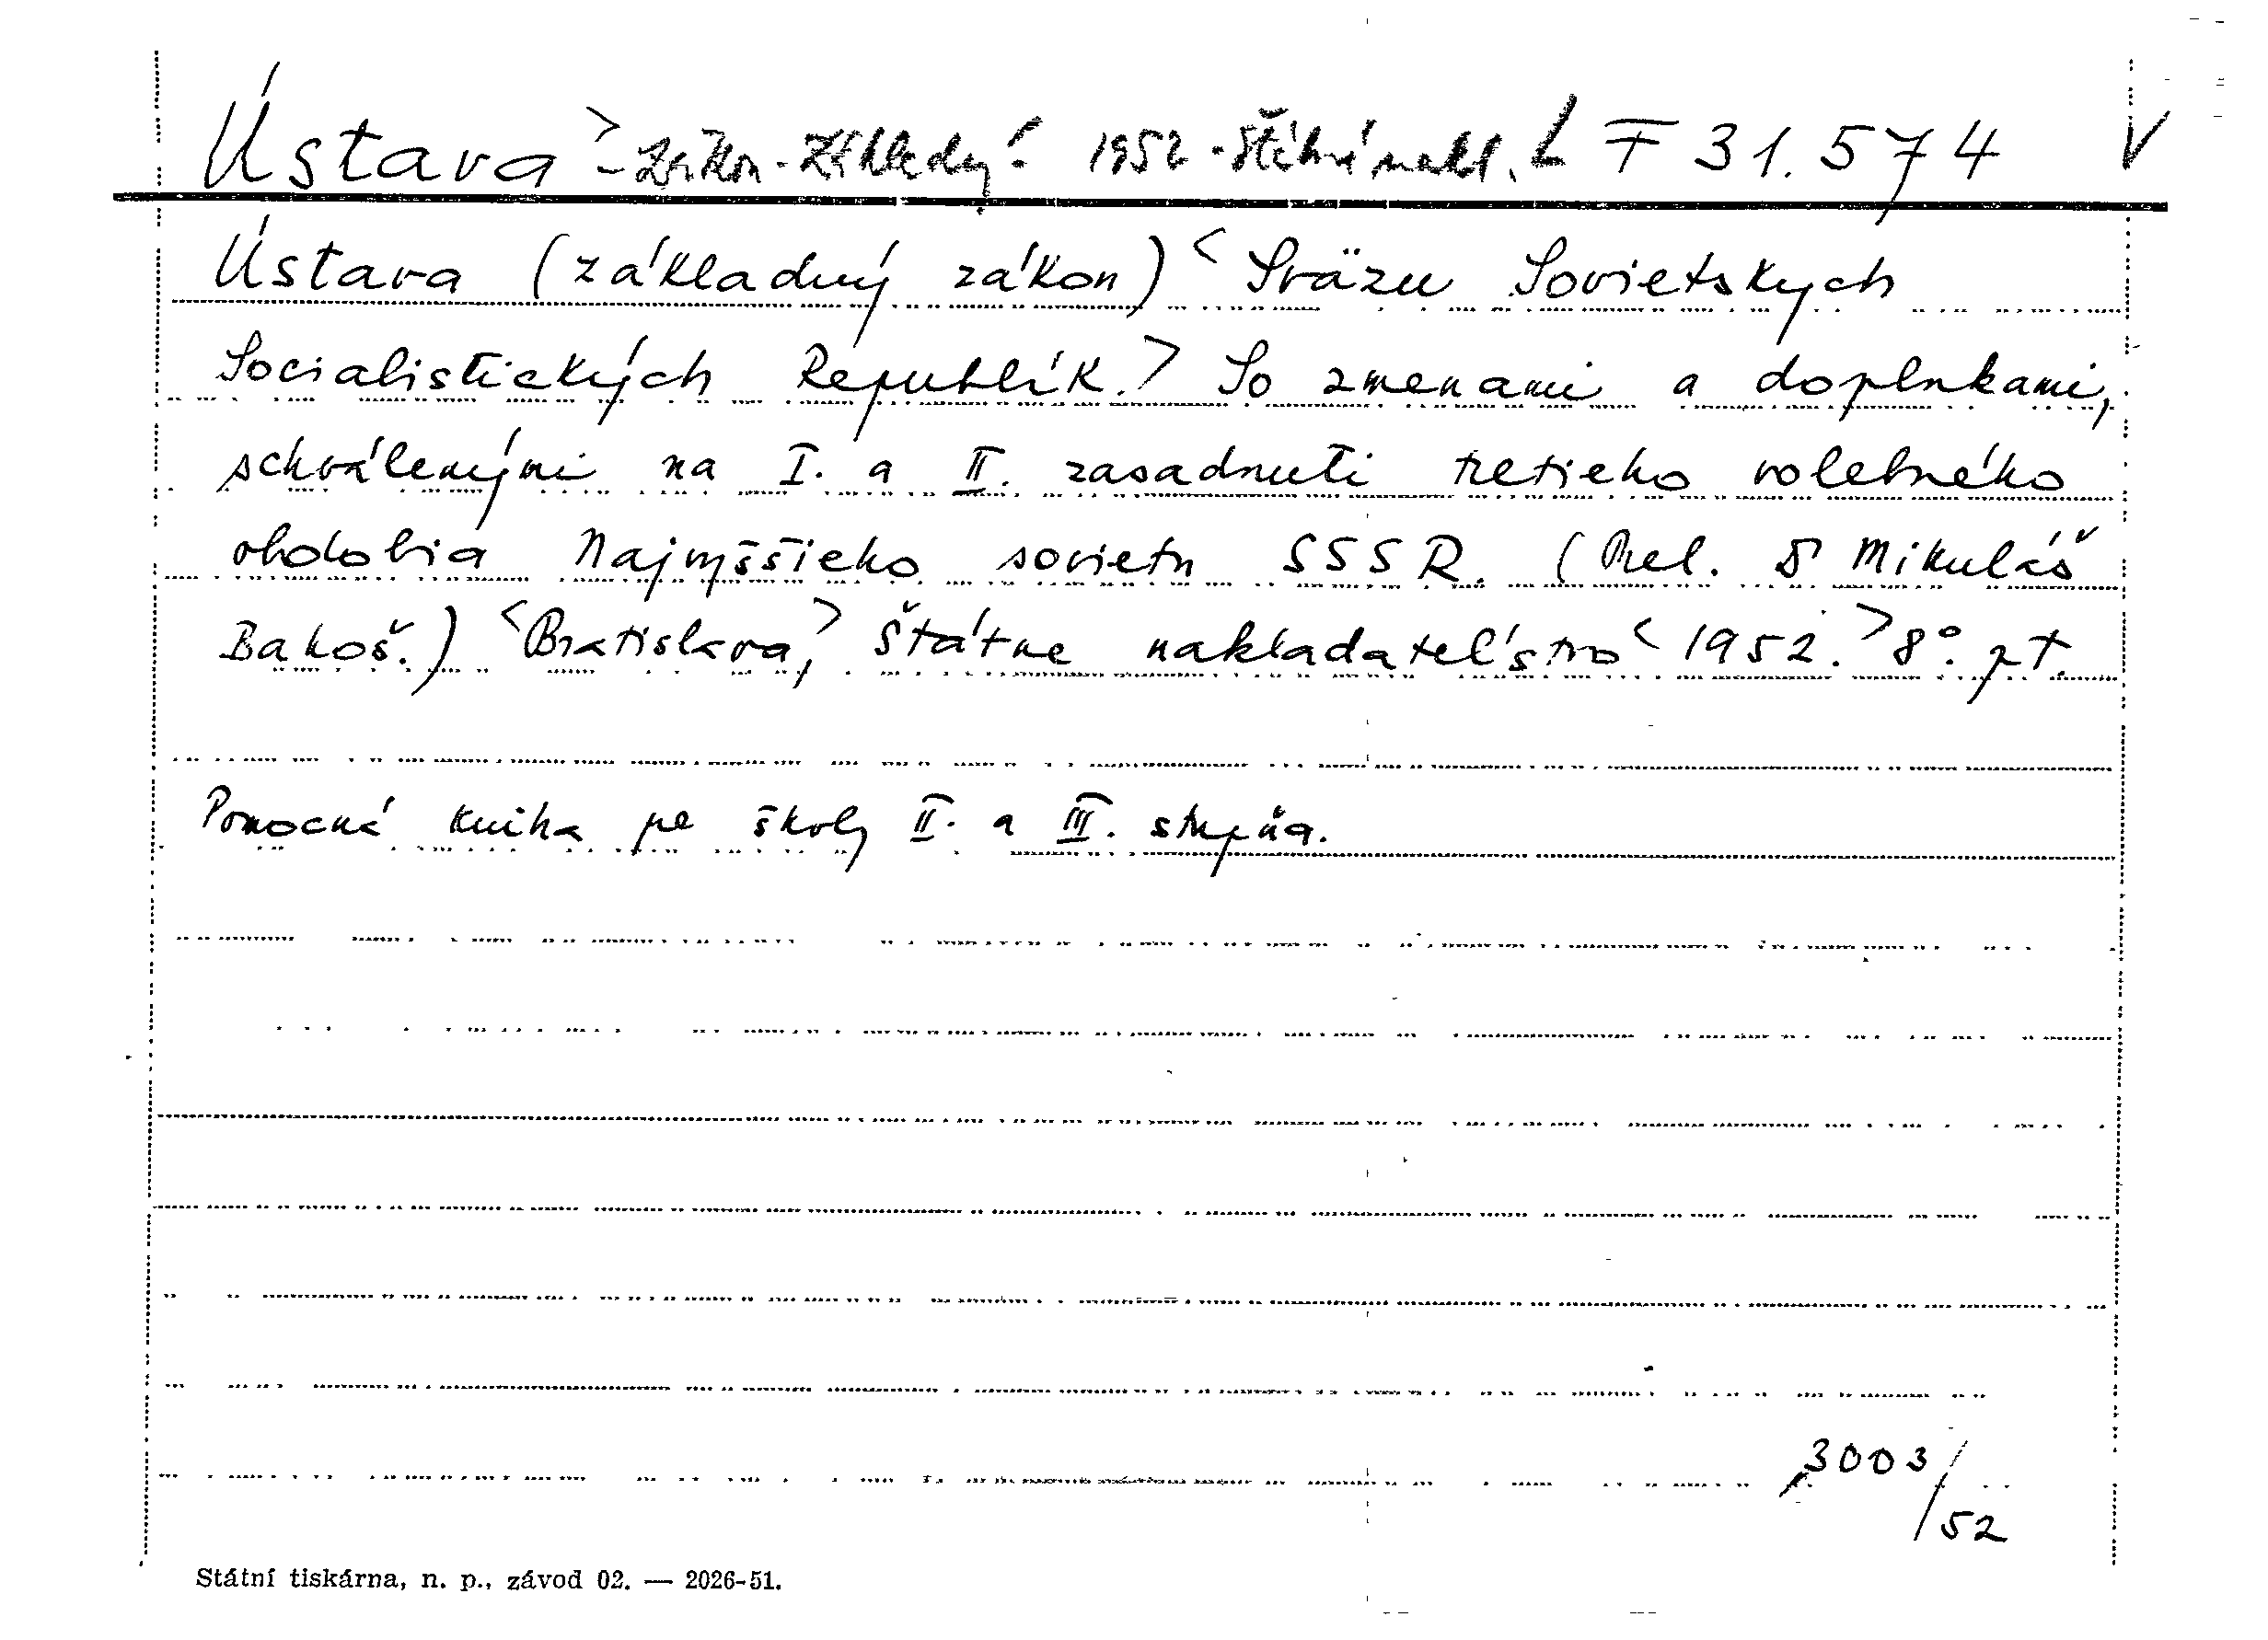 Ústava > - zákon - základný! 1952 - Státné nakl. L F 31.574 V
Ústava (základný zákon) < Sväzu Sovietskych
Socialistických Republík. > So zmenami a doplnkami,
schválenými na I. a II. zasadnutí tretieho volebného
obdobia Najvyššieho sovietu SSSR. (Prel. Mikuláš
Bakoš.) < Bratislava, > Štátne nakladateľstvo < 1952. > 8°. pt.
Pomocná kniha pre školy II. a III. stupňa.
3003/
52
Státní tiskárna, n. p., závod 02. — 2026-51.